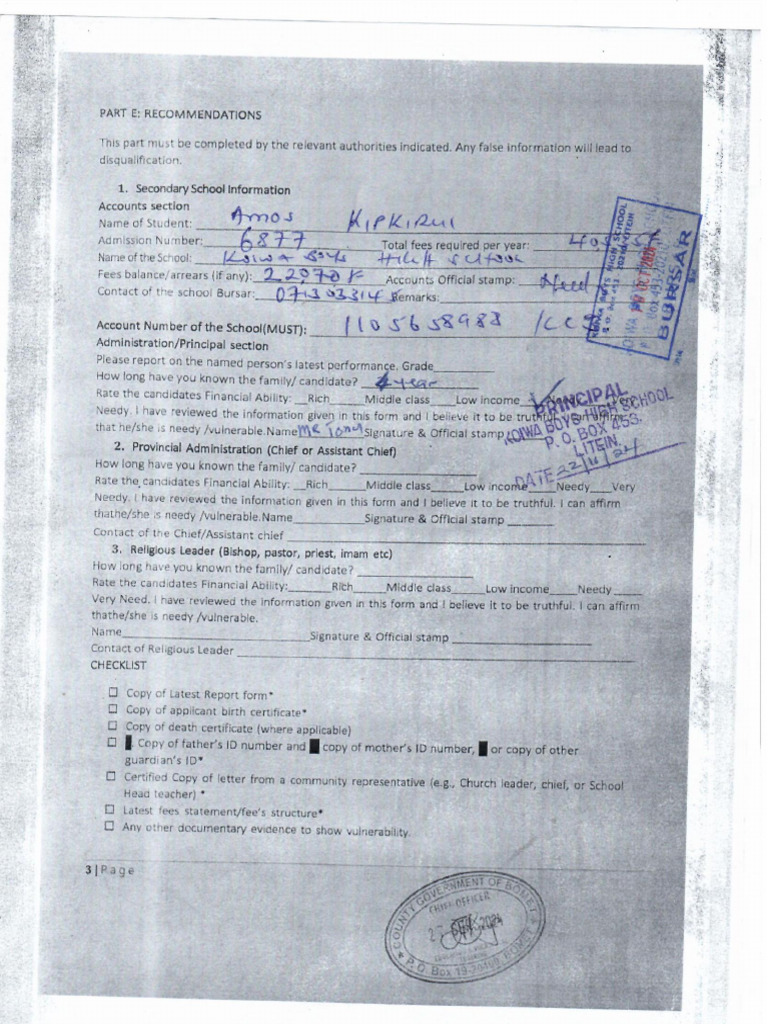 PART E: RECOMMENDATIONS
This part must be completed by the relevant authorities indicated. Any false information will lead to
disqualification.
1. Secondary School Information
Accounts section
Name of Student: Amos KIPKIRUI
Admission Number: 6877 Total fees required per year:
Name of the School: KOIWA BOYS HIGH SCHOOL
Fees balance/arrears (if any): 22070 Accounts Official stamp:
Contact of the school Bursar: Remarks:
Account Number of the School(MUST): 1105658983 /KCB
Administration/Principal section
Please report on the named person's latest performance. Grade
How long have you known the family/ candidate? year
Rate the candidates Financial Ability: __Rich____Middle class____Low income Very
Needy. I have reviewed the information given in this form and I believe it to be truthful.
that he/she is needy /vulnerable.Name Mr Signature & Official stamp
KOIWA BOYS HIGH SCHOOL
P. O. Box 453 - 20210 LITEIN
BURSAR
PRINCIPAL
KOIWA BOYS HIGH SCHOOL
P. O. BOX 453.
LITEIN.
DATE 22/11/24
2. Provincial Administration (Chief or Assistant Chief)
How long have you known the family/ candidate?
Rate the candidates Financial Ability: __Rich____Middle class____Low income____Needy___Very
Needy. I have reviewed the information given in this form and I believe it to be truthful. I can affirm
thathe/she is needy /vulnerable.Name Signature & Official stamp
Contact of the Chief/Assistant chief
3. Religious Leader (Bishop, pastor, priest, imam etc)
How long have you known the family/ candidate?
Rate the candidates Financial Ability:_____Rich____Middle class____Low income____Needy ____
Very Need. I have reviewed the information given in this form and I believe it to be truthful. I can affirm
thathe/she is needy /vulnerable.
Name Signature & Official stamp
Contact of Religious Leader
CHECKLIST
☐ Copy of Latest Report form*
☐ Copy of applicant birth certificate*
☐ Copy of death certificate (where applicable)
☐ . Copy of father's ID number and copy of mother's ID number, or copy of other
guardian's ID*
☐ Certified Copy of letter from a community representative (e.g., Church leader, chief, or School
Head teacher) *
☐ Latest fees statement/fee's structure*
☐ Any other documentary evidence to show vulnerability.
3 | Page
COUNTY GOVERNMENT OF BOMET
CHIEF OFFICER
2024
P. O. Box 19-20400, BOMET